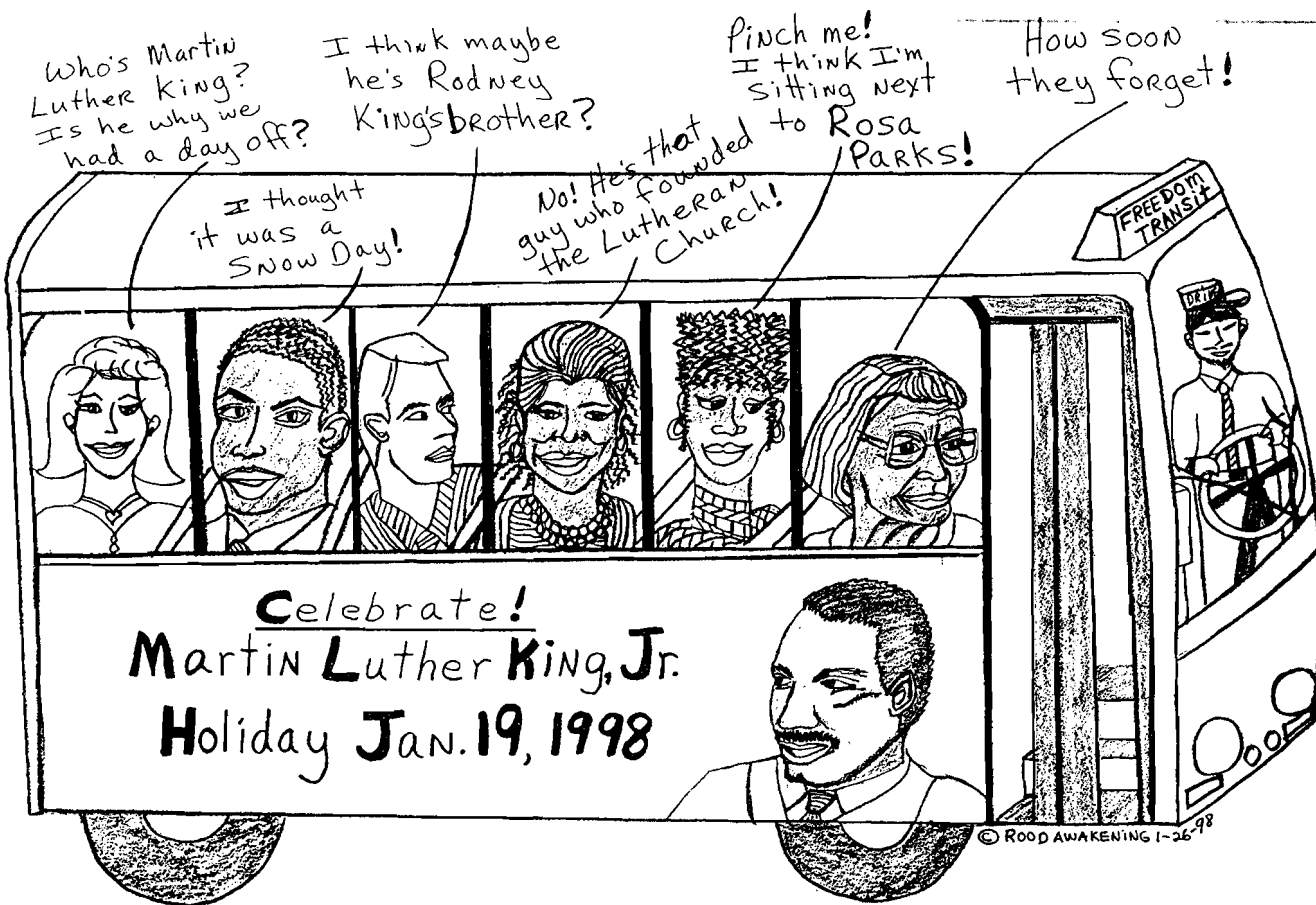 Who's Martin
Luther King?
Is he why we
had a day off?
I thought
it was a
Snow Day!
I think maybe
he's Rodney
King's brother?
No! He's that
guy who founded
the Lutheran
Church!
Pinch me!
I think I'm
sitting next
to Rosa
Parks!
How soon
they forget!
FREEDOM
TRANSIT
DRIV
Celebrate!
Martin Luther King, Jr.
Holiday Jan. 19, 1998
© ROOD AWAKENING 1-26-98